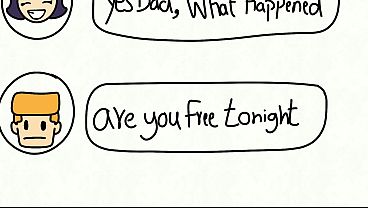 yes Dad, What Happened
are you free tonight